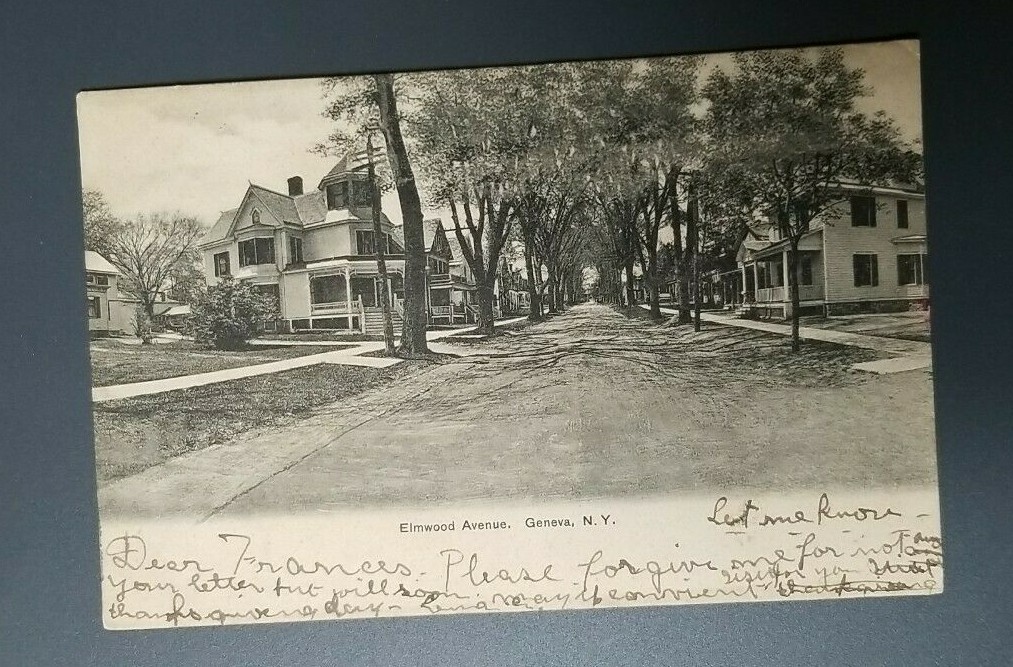 Elmwood Avenue. Geneva, N.Y.
Let me know
Dear Frances. Please forgive me for not
your letter but will soon. visit for you
thanksgiving day - may convient